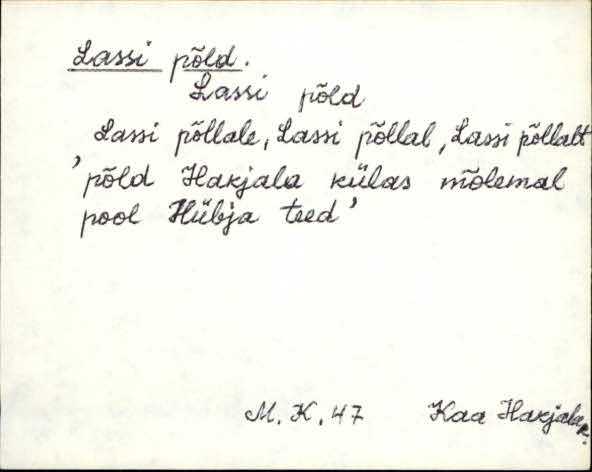 Lassi põld.
Lassi põld
Lassi põllale, Lassi põllal, Lassi põllalt
'põld Harjala külas mõlemal
pool Hübja teed'
M. K. 47 Kaa Harjala k.